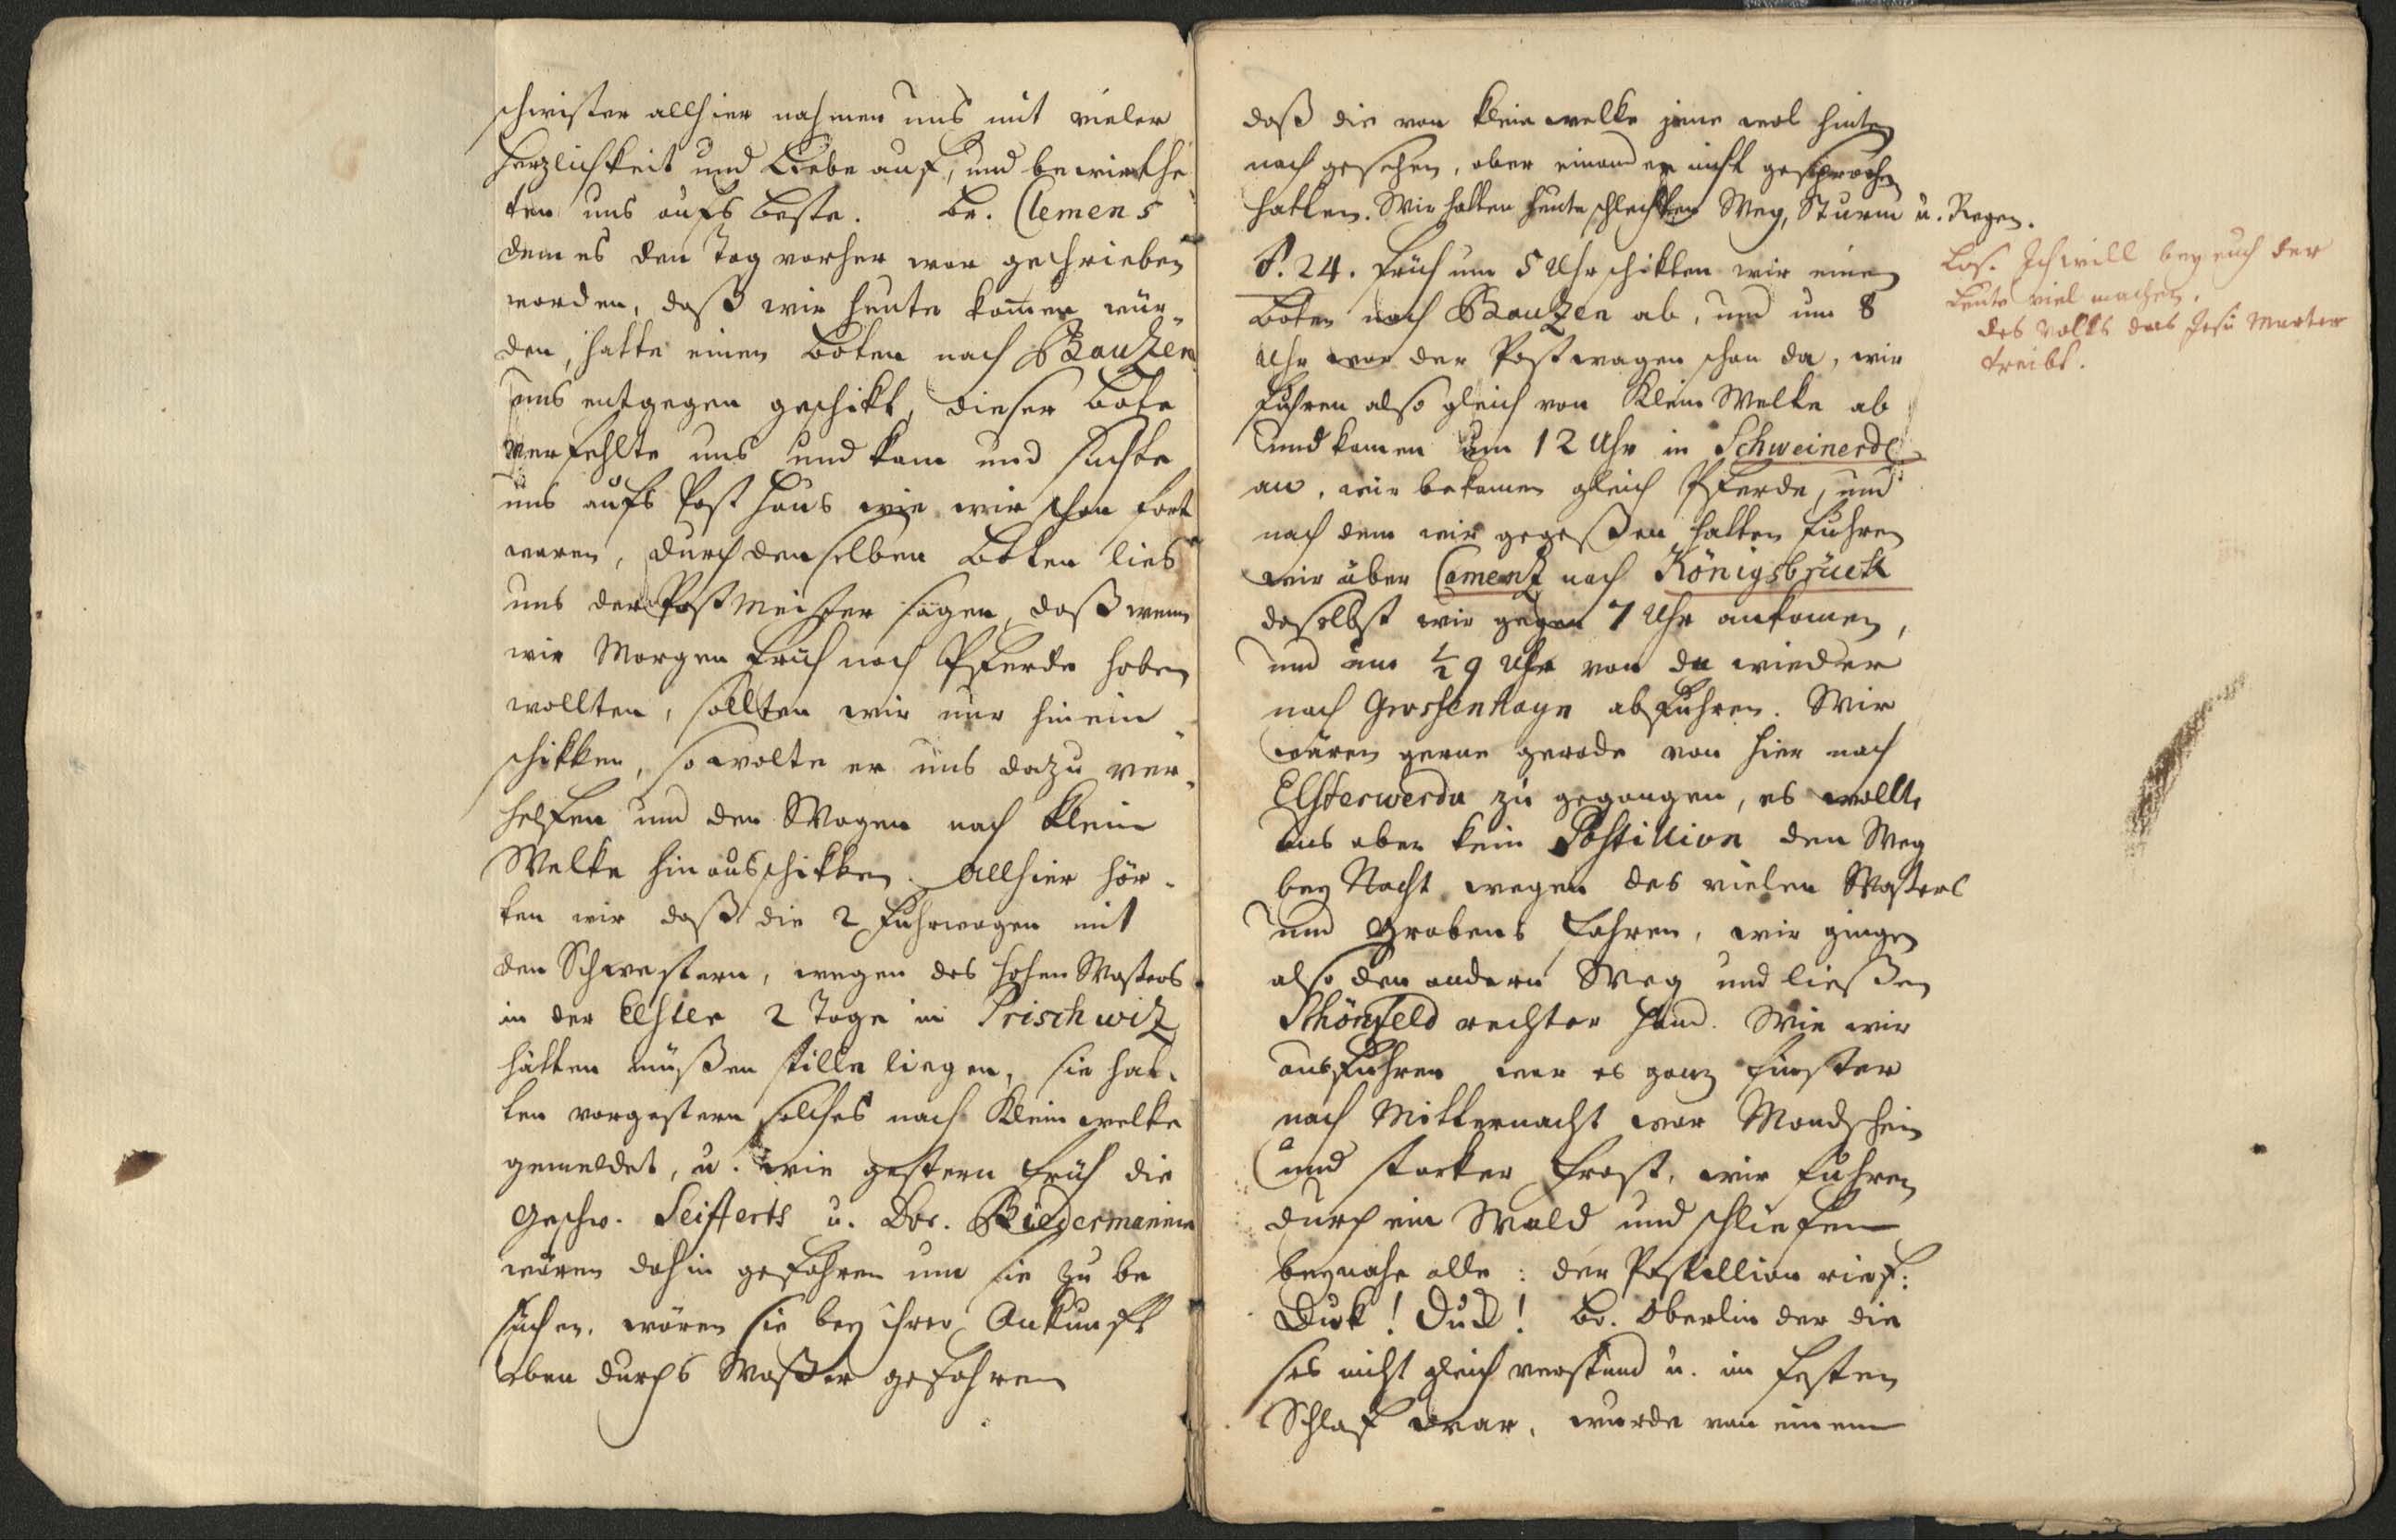 schwister allhier nahmen uns mit vieler
Herzlichkeit und Liebe auf, und bewirthe
ten uns aufs beste. Br. Clemens
dem es den Tag vorher war geschrieben
worden, daß wir heute komen wür-
den, hatte einen Boten nach Bauzen
uns entgegen geschikt, dieser Bote
verfehlte uns und kam und suchte
uns aufs Post Haus wie wir schon fort
waren, durch denselben Boten lies
uns der Post Meister sagen, daß wenn
wir Morgen früh noch Pferde haben
wollten, sollten wir nur hinein
schikken, so wolte er uns dazu ver-
helfen und den Wagen nach Klein
Welke hinausschikken. Allhier hör-
ten wir daß die 2 Fuhrwagen mit
den Schwestern, wegen des hohen Wassers
in der Elster 2 Tage in Prischwiz
hätten müßen stille liegen, sie hat-
ten vorgestern solches nach Kleinwelke
gemeldet, u. wie gestern früh die
Geschw. Seifferts u. Biedermannin
wären dahin gefahren um sie zu be
suchen, wären sie bey ihrer Ankunft
eben durchs Waßer gefahren
daß die von Kleinwelke jene wol hinten
nach gesehen, aber einander nicht gesprochen
hatten. Wir hatten heute schlechten Weg, Sturm u. Regen.
d. 24. früh um 5 Uhr schikten wir einen
Boten nach Bauzen ab, und um 8
Uhr war der Postwagen schon da, wir
fuhren also gleich von Klein Welke ab
und kamen um 12 Uhr in Schweinerde
an, wir bekamen gleich Pferde, und
nach dem wir gegeßen hatten fuhren
wir über Camenz nach Königsbrück
daselbst wir gegen 7 Uhr ankamen,
und um ½ 9 Uhr von da wieder
nach Grossenhayn abfuhren. Wir
wären gerne gerade von hier nach
Elsterwerda zu gegangen, es wollte
uns aber kein Postillion den Weg
bey Nacht wegen des vielen Wassers
und Grabens fahren, wir gingen
also den andern Weg und ließen
Schönfeld rechter Hand. Wie wir
ausfuhren war es ganz finster
nach Mitternacht war Mondschein
und starker Frost, wir fuhren
durch ein Wald und schliefen
beynahe alle: der Postillion rief:
Duk! Duk! Br. Oberlin der die
ses nicht gleich verstund u. im festen
Schlaf war, wurde von einem
Los. Ich will bey euch der
Leute viel machen,
des Volks das Jesu Marter
treibt.